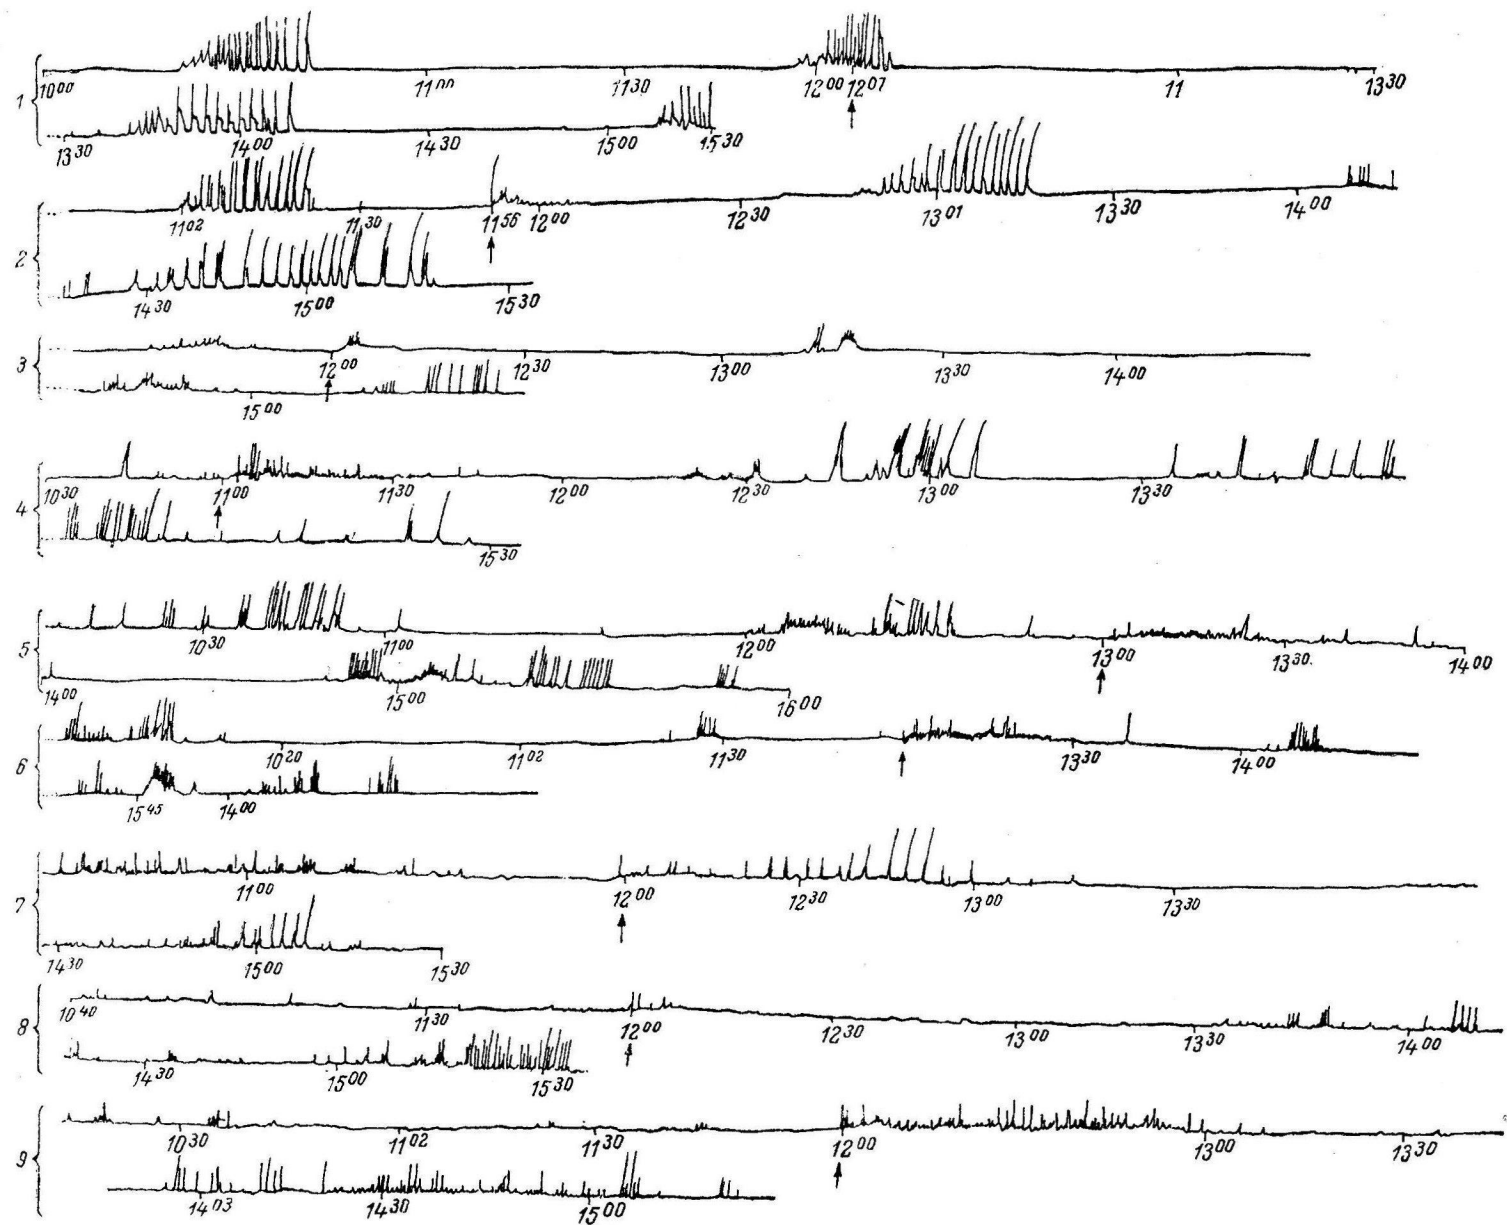 10 00 11 00 11 30 12 00 12 07 11 13 30
1
13 30 14 00 14 30 15 00 15 30
11 02 11 30 11 56 12 00 12 30 13 01 13 30 14 00
2
14 30 15 00 15 30
3
12 00 12 30 13 00 13 30 14 00
15 00
10 30 11 00 11 30 12 00 12 30 13 00 13 30
4
15 30
10 30 11 00 12 00 13 00 13 30 14 00
5
14 00 15 00 16 00
10 20 11 02 11 30 13 30 14 00
6
15 45 14 00
11 00 12 00 12 30 13 00 13 30
7
14 30 15 00 15 30
10 40 11 30 12 00 12 30 13 00 13 30 14 00
8
14 30 15 00 15 30
10 30 11 02 11 30 12 00 13 00 13 30
9
14 03 14 30 15 00